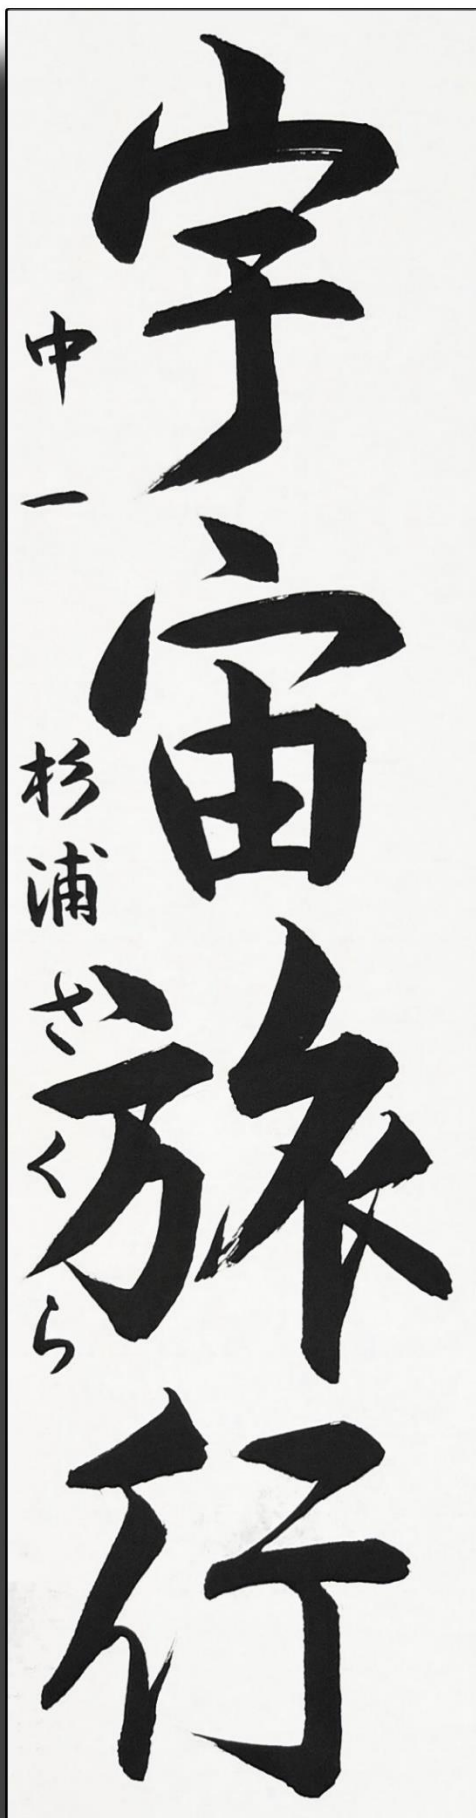 宇宙旅行
中一 杉浦さくら